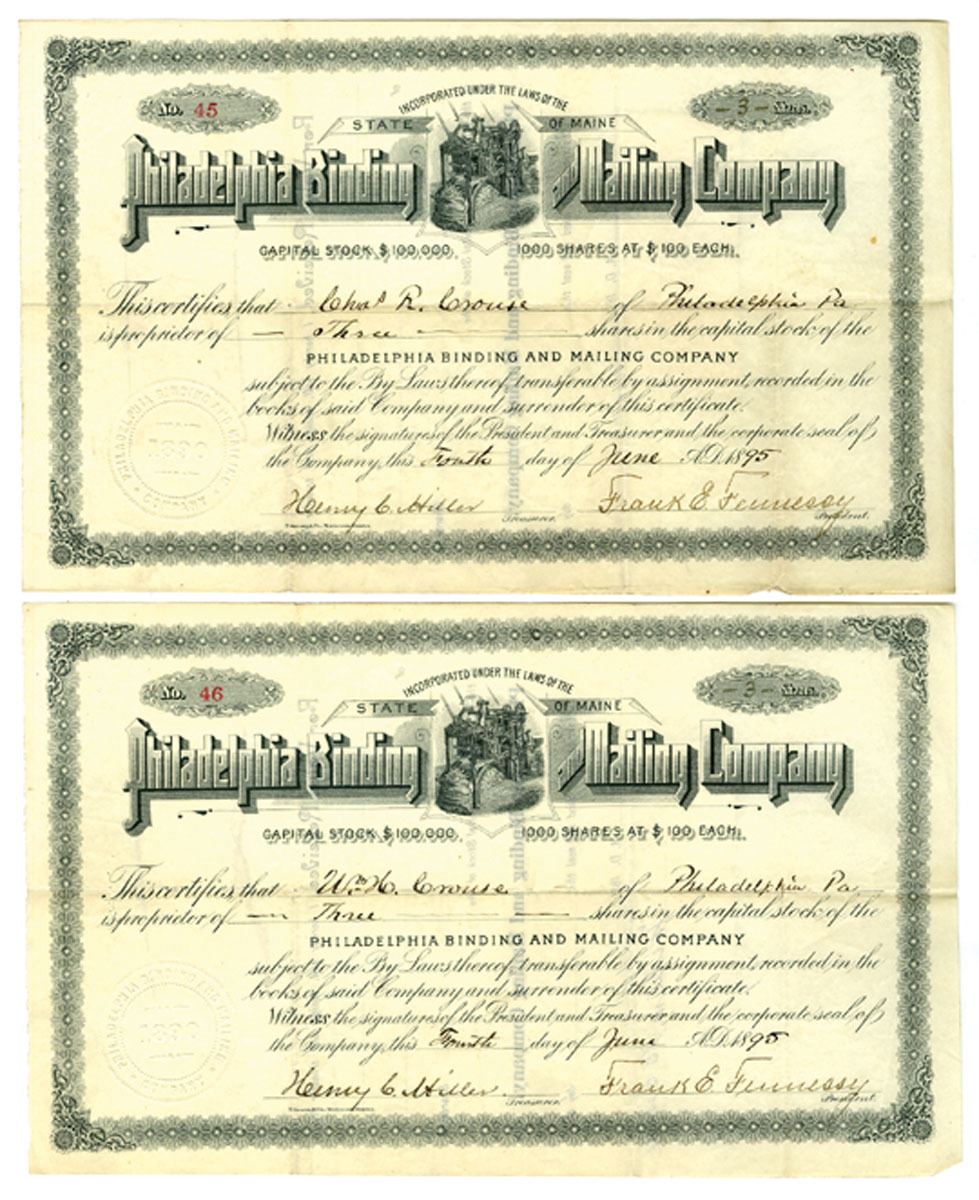 No. 45
- 3 - Shrs.
INCORPORATED UNDER THE LAWS OF THE
STATE OF MAINE
Philadelphia Binding and Mailing Company
CAPITAL STOCK $100,000. 1000 SHARES AT $100 EACH.
This certifies that Chas R. Crouse of Philadelphia Pa
is proprietor of — Three — shares in the capital stock of the
PHILADELPHIA BINDING AND MAILING COMPANY
subject to the By Laws thereof, transferable by assignment, recorded in the
books of said Company and surrender of this certificate.
Witness the signatures of the President and Treasurer and the corporate seal of
the Company, this Fourth day of June A.D. 1895
Henry C. Miller Frank E. Fennessy
Treasurer. President.
PHILADELPHIA BINDING AND MAILING COMPANY
No. 46
- 3 - Shrs.
INCORPORATED UNDER THE LAWS OF THE
STATE OF MAINE
Philadelphia Binding and Mailing Company
CAPITAL STOCK $100,000. 1000 SHARES AT $100 EACH.
This certifies that Wm H. Crouse of Philadelphia Pa
is proprietor of — Three — shares in the capital stock of the
PHILADELPHIA BINDING AND MAILING COMPANY
subject to the By Laws thereof, transferable by assignment, recorded in the
books of said Company and surrender of this certificate.
Witness the signatures of the President and Treasurer and the corporate seal of
the Company, this Fourth day of June A.D. 1895
Henry C. Miller Frank E. Fennessy
Treasurer. President.